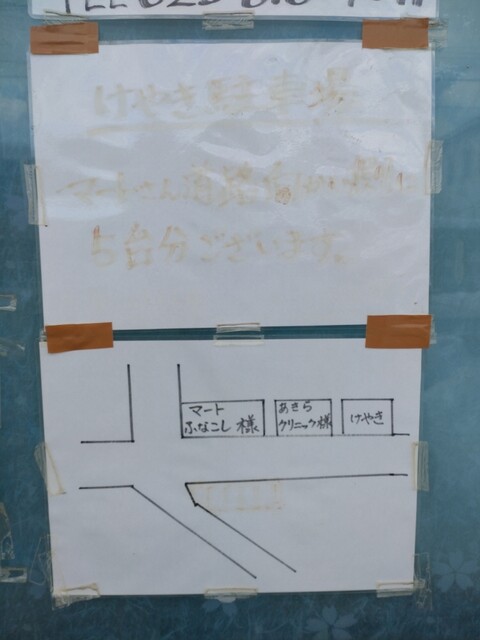 けやき駐車場
マートさん道路
5台分ございます。
マート
ふなこし 様
あきら
クリニック様
けやき